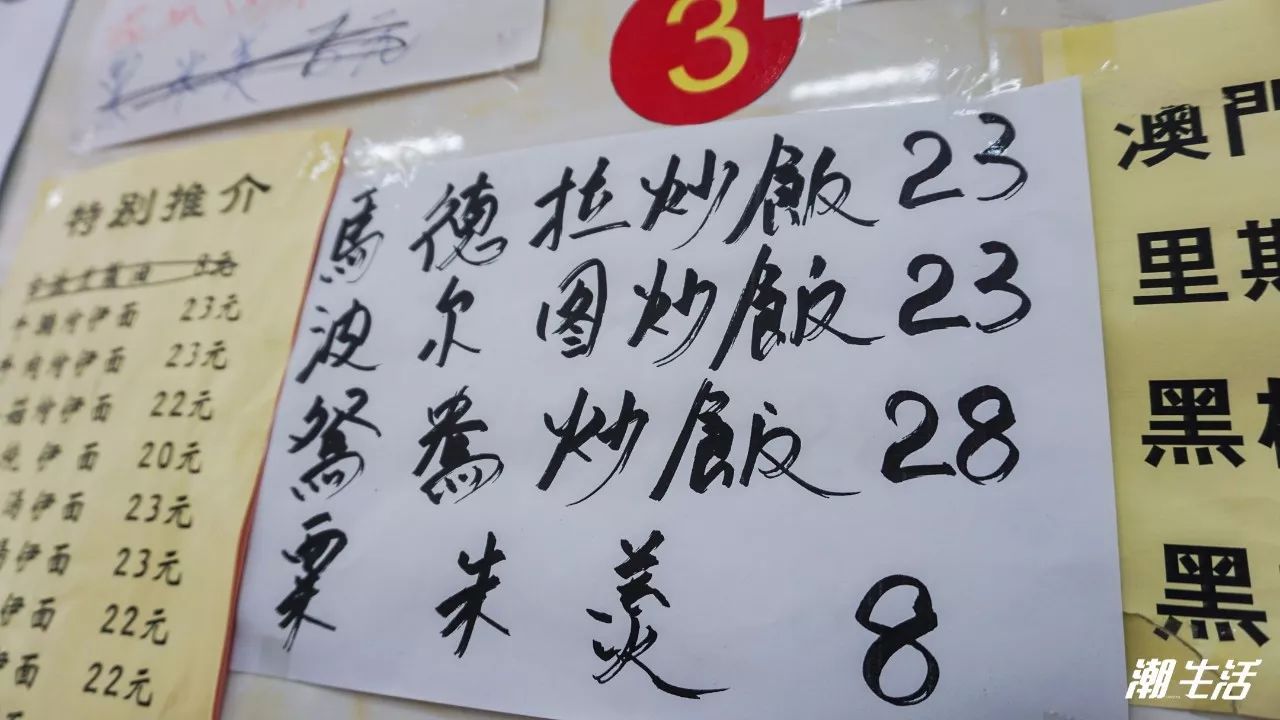 3
特别推介
8元
伊面 23元
伊面 23元
伊面 22元
伊面 20元
湯伊面 23元
伊面 23元
伊面 22元
伊面 22元
馬德拉炒飯 23
波尔图炒飯 23
鴛鴦炒飯 28
粟米羹 8
澳門
里斯
黑
黑
潮生活